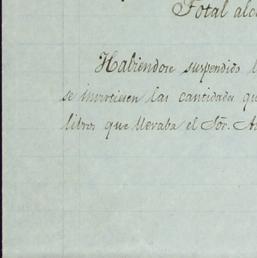 Total alc
Habiendose suspendido l
se invirtiesen las cantidades qu
libros que llevaba el Sór. A